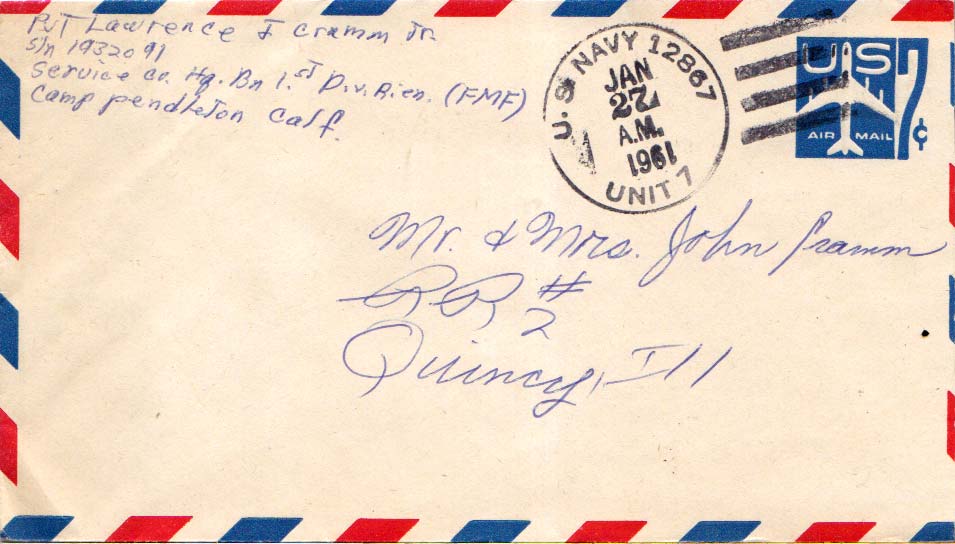 Pvt Lawrence J Cramm Jr.
S/n 1932091
Service Co. Hq. Bn 1.st Div. Rien. (FMF)
Camp pendleton Calf.
U.S. NAVY 12867
JAN
27
A.M.
1961
UNIT 1
US 7¢
AIR MAIL
Mr. & Mrs. John Cramm
R.R. #
2
Quincy, Ill